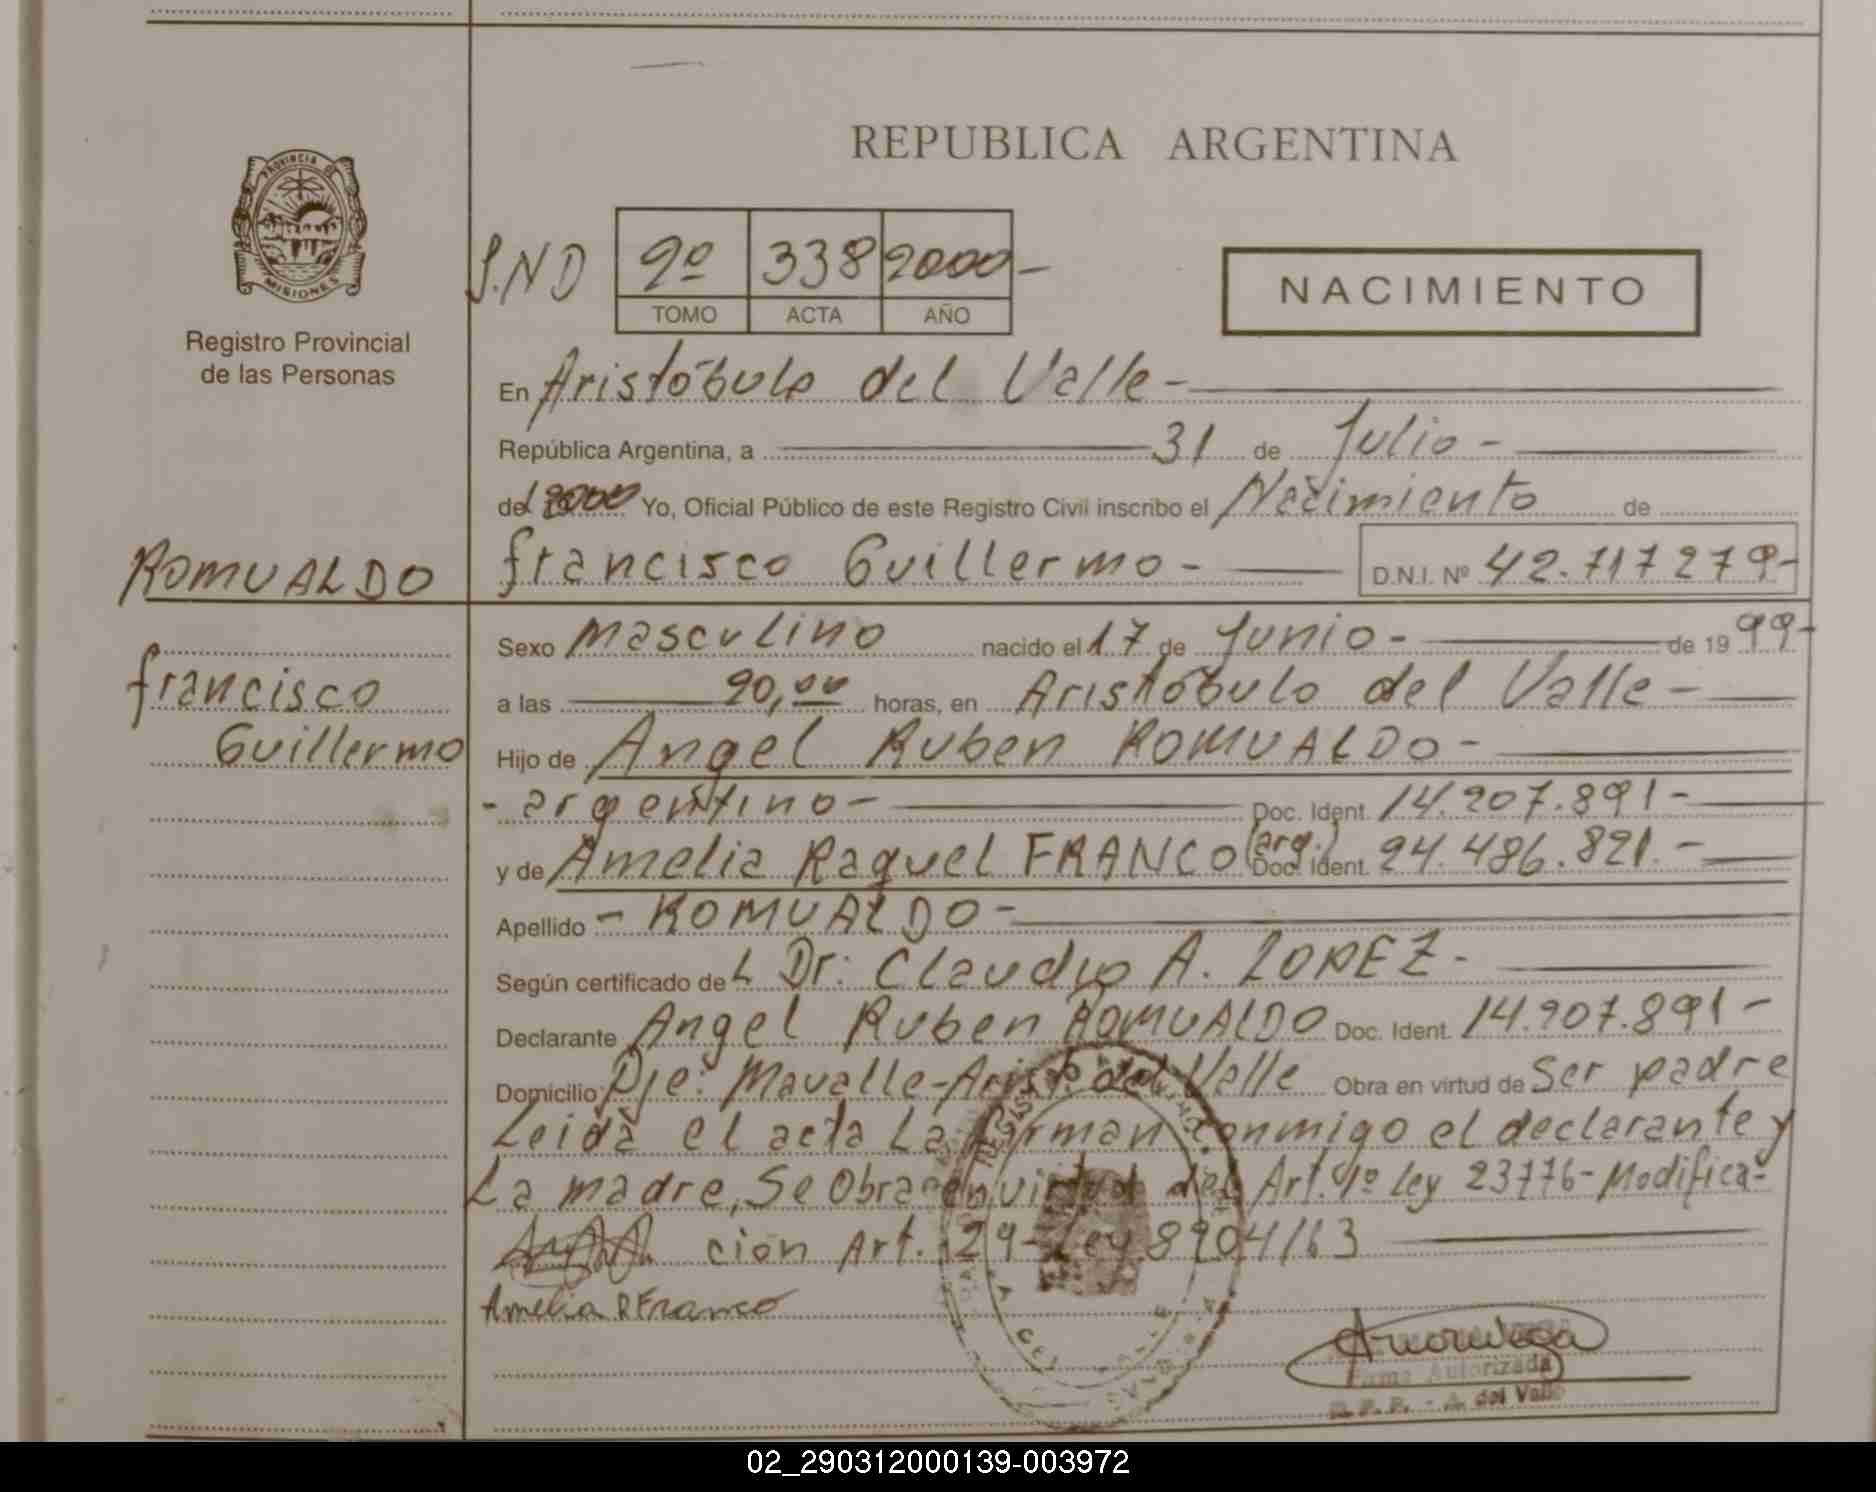 REPUBLICA ARGENTINA
PROVINCIA DE
MISIONES
Registro Provincial
de las Personas
S.ND
2º 338 2000-
TOMO ACTA AÑO
NACIMIENTO
En Aristóbulo del Valle-
República Argentina, a 31 de Julio-
del 2000 Yo, Oficial Público de este Registro Civil inscribo el Nacimiento de
ROMUALDO
Francisco Guillermo- D.N.I. Nº 42.717279-
Francisco
Guillermo
Sexo Masculino nacido el 17 de Junio- de 1999-
a las 20,00 horas, en Aristóbulo del Valle-
Hijo de Angel Ruben ROMUALDO-
-argentino- Doc. Ident. 14.207.891-
y de Amelia Raquel FRANCO (arg.) Doc. Ident. 24.486.821.-
Apellido -ROMUALDO-
Según certificado del Dr: Claudio A. LOPEZ-
Declarante Angel Ruben ROMUALDO Doc. Ident. 14.207.891-
Domicilio Pje: Mavalle-Arist. del Valle Obra en virtud de Ser padre
Leida el acta La firman conmigo el declarante y
La madre, Se Obra en virtud del Art. 4º Ley 23776-Modifica-
ción Art. 29-Ley 8204/63
Amelia R Franco
Firma Autorizada
R. P. P. - A. del Valle
02_290312000139-003972